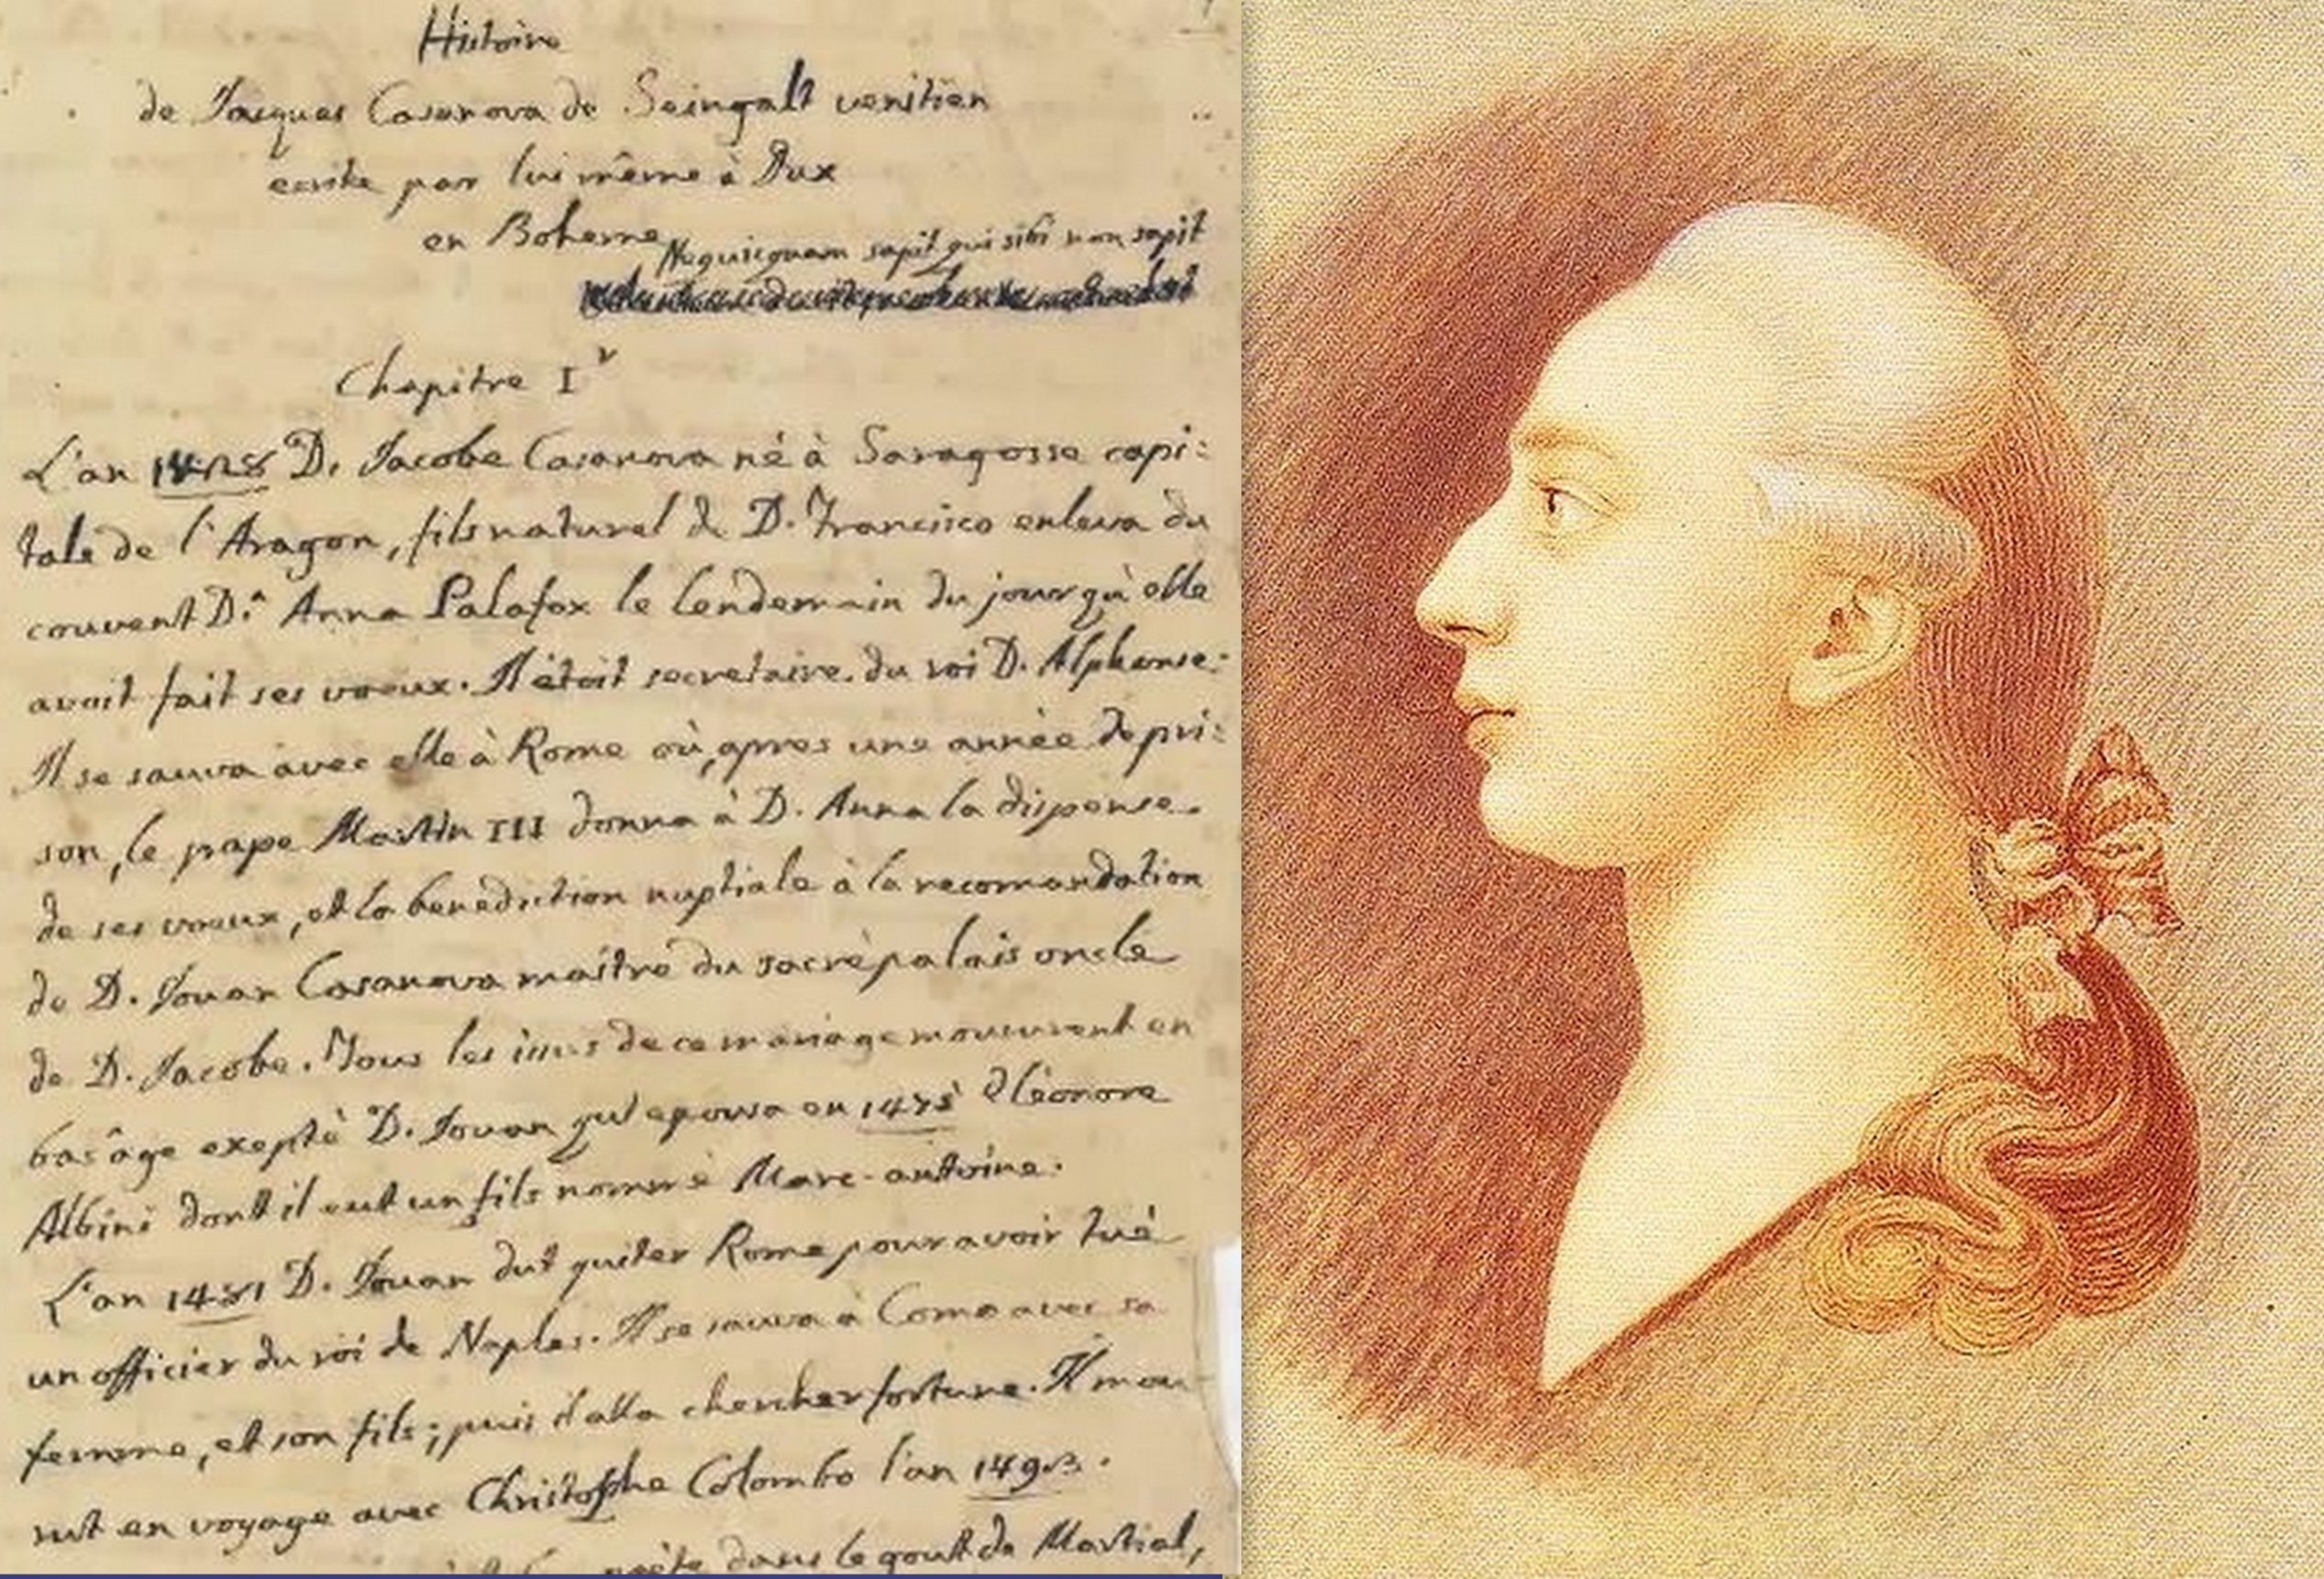 Histoire
de Jacques Casanova de Seingalt venitien
ecrite par lui même à Dux
en Boheme
Nequicquam sapit qui sibi non sapit
Chapitre I^r
L'an 1428 D. Jacobe Casanova né à Saragosse capi:
tale de l'Aragon, fils naturel de D. Francisco enleva du
couvent D.^a Anna Palafox le lendemain du jour qu'elle
avoit fait ses voeux. Il étoit secretaire du roi D. Alphonse.
Il se sauva avec elle à Rome où, apres une année de pri:
son, le pape Martin III donna à D. Anna la dispense
de ses voeux, et la benediction nuptiale à la recomandation
de D. Jouan Casanova maître du sacré palais oncle
de D. Jacobe. Tous les issus de ce mariage moururent en
bas âge exepté D. Jouan qui epousa en 1475 Eléonore
Albini dont il eut un fils nommé Marc-antoine.
L'an 1481 D. Jouan dut quiter Rome pour avoir tué
un officier du roi de Naples. Il se sauva à Como avec sa
femme, et son fils; puis il alla chercher fortune. Il mou-
rut en voyage avec Christophe Colombo l'an 1493.
poète dans le gout de Martial,